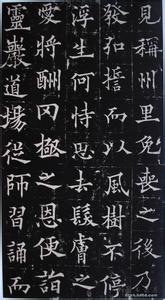 見稱州里免喪之後
發弘誓而以風樹不停
浮生何恃思去髮膚之
愛將酬罔極之恩便詣
靈巖道場從師習誦而